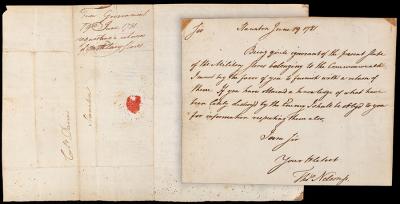 From Governour
19th June 1781
requesting a return
of military stores
Colo. Davies
Staunton
Sir
Staunton June 19. 1781
Being quite ignorant of the present state
of the Military Stores belonging to the Commonwealth
I must beg the favor of you to furnish with a return of
them. If you have obtained a knowledge of what have
been lately destroyed by the Enemy I shall be obliged to you
for information respecting them also.
I am Sir
Your Obt Servt
Thos. Nelson jr.